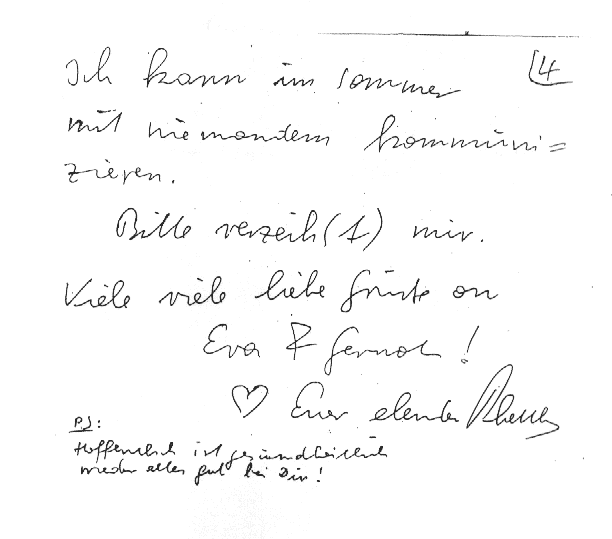 4
Ich kann im Sommer
mit niemandem kommuni=
zieren.
Bitte verzeih(t) mir.
Viele viele liebe Grüße an
Eva & Gernot!
♡ Euer elender
PS:
Hoffentlich ist gesundheitlich
wieder alles gut bei Dir!